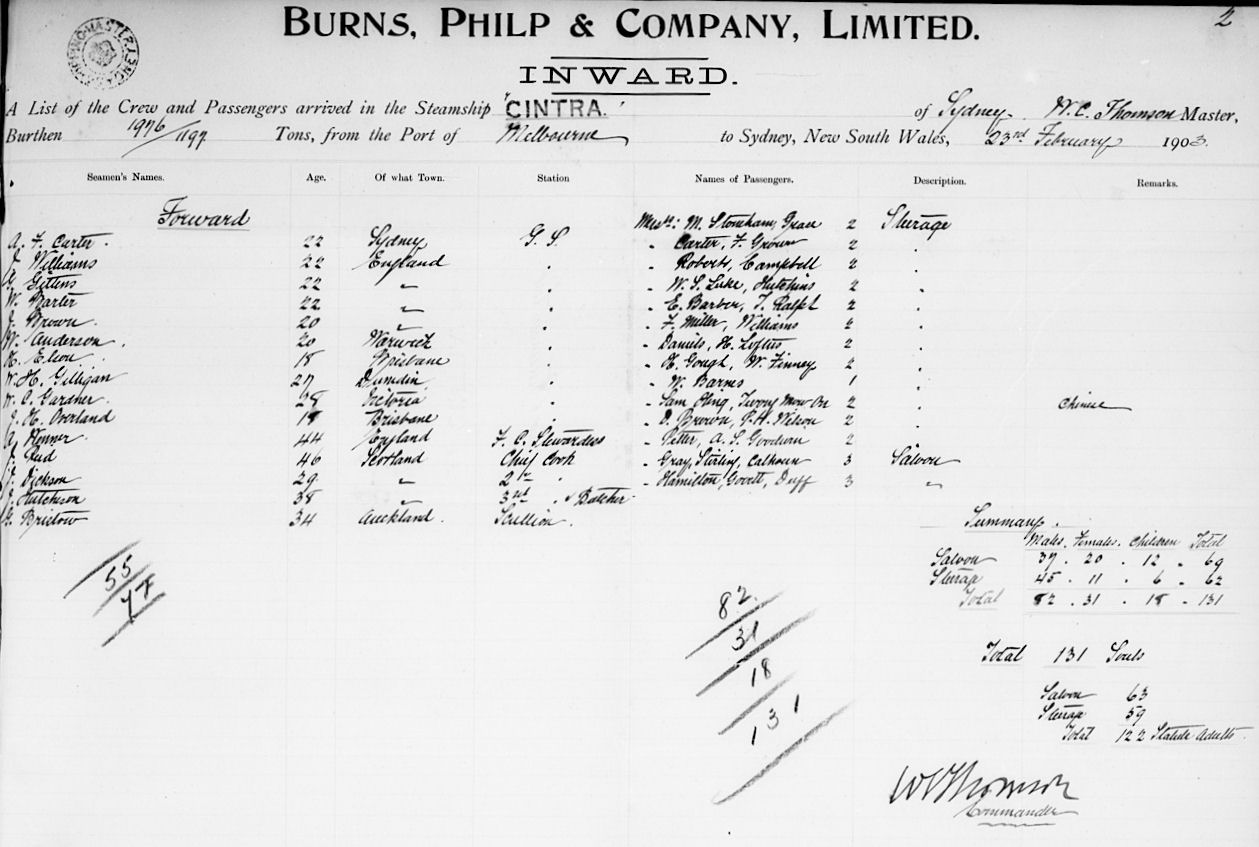 2
BURNS, PHILP & COMPANY, LIMITED.
INWARD.
A List of the Crew and Passengers arrived in the Steamship "CINTRA." of Sydney. W. C. Thomson Master,
Burthen 1976/1197 Tons, from the Port of Melbourne to Sydney, New South Wales, 23rd February 1903.
Seamen's Names. Age. Of what Town. Station Names of Passengers. Description. Remarks.
Forward Messrs: M. Stoneham, Grau 2 Steerage
A. F. Carter. 22 Sydney G. S. " Carter, F. Grown 2 "
J. Williams 22 England " " Roberts, Campbell 2 "
Gittens 22 " " " W. S. Luke, Hutchins 2 "
W. Barter 22 " " " E. Barber, T. Ralph 2 "
J. Brown. 20 " " " F. Miller, Williams 2 "
W. Anderson. 20 Warwick " " Daniels, H. Loftus 2 "
H. Elson. 18 Brisbane " " H. Gough, W. Finney 2 "
W. H. Gilligan 27 Dunedin " " W. Barns 1 "
W. C. Gardner. 28 Victoria " " Sam Hing, 2 " Chinese
J. H. Overland 18 Brisbane " " D. Brown, P. H. Wilson 2 "
A. 44 England F. C. Stewardess " Petter, A. S. Goodwin 2 "
J. Reid 46 Scotland Chief Cook " Gray, Stirling, Calhoun 3 Saloon
Dickson 29 " 2nd " " Hamilton, Govett, Duff 3 "
J. Hutchison 38 " 3rd " & Butcher
G. Bristow 34 Auckland. Scullion.
Summary.
Males. Females. Children Total
Saloon 37 . 20 . 12 . 69
Steerage 45 . 11 . 6 . 62
Total 82 . 31 . 18 . 131
55
77
82
31
18
131
Total 131 Souls
Saloon 63
Steerage 59
Total 122 Statute Adults
W C Thomson
Commander